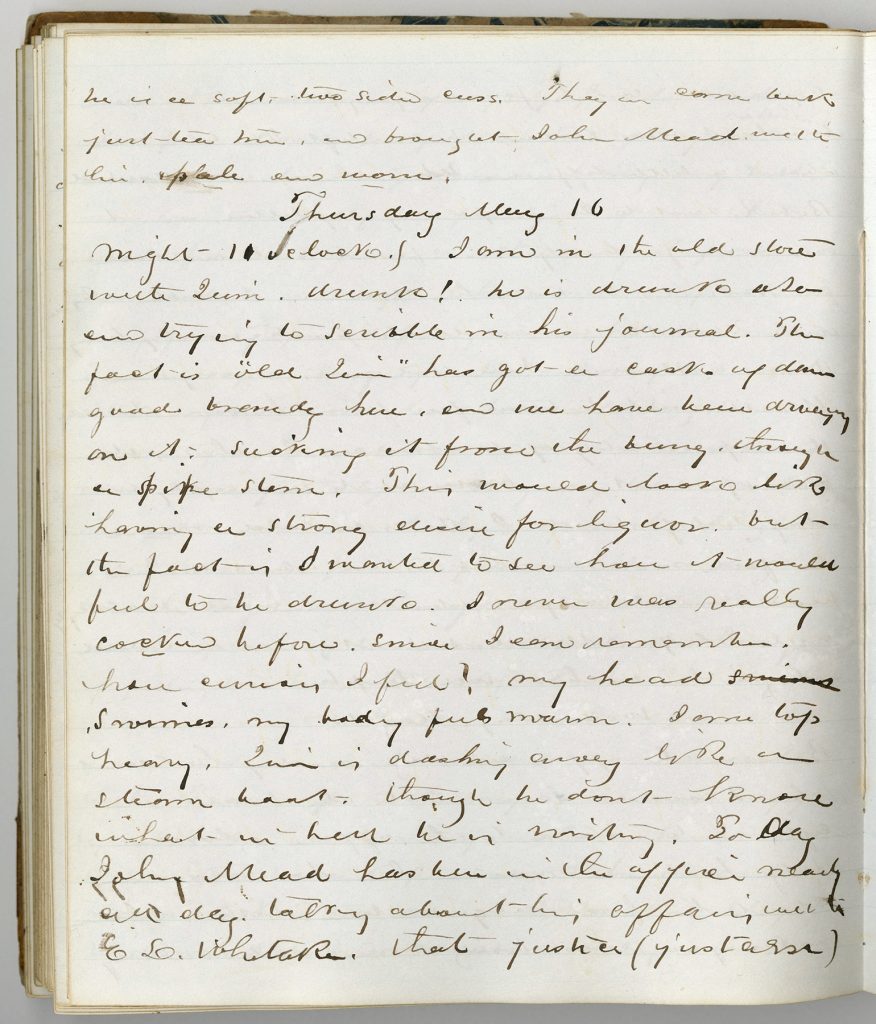 he is a soft, two sided cuss. They come back
just tea time, and brought John Mead with
him. pale and worn.
Thursday May 16
Night 11 o'clock.) I am in the old store
with Quin. drunk! he is drunk also
and trying to scribble in his journal. The
fact is "old Quin" has got a cask of damn
good brandy here, and we have been drawing
on it; sucking it from the bung, through
a pipe stem. This would look like
having a strong desire for liquor. but
the fact is I wanted to see how it would
feel to be drunk. I never was really
cocked before, since I can remember.
how curious I feel! my head swims
swims, my body feels warm. I am top
heavy. Quin is dashing away like a
steam boat, though he dont know
what in hell he is writing. To day
John Mead has been in the office nearly
all day. talking about his affairs with
E L. Whitaker. that justice (justass)